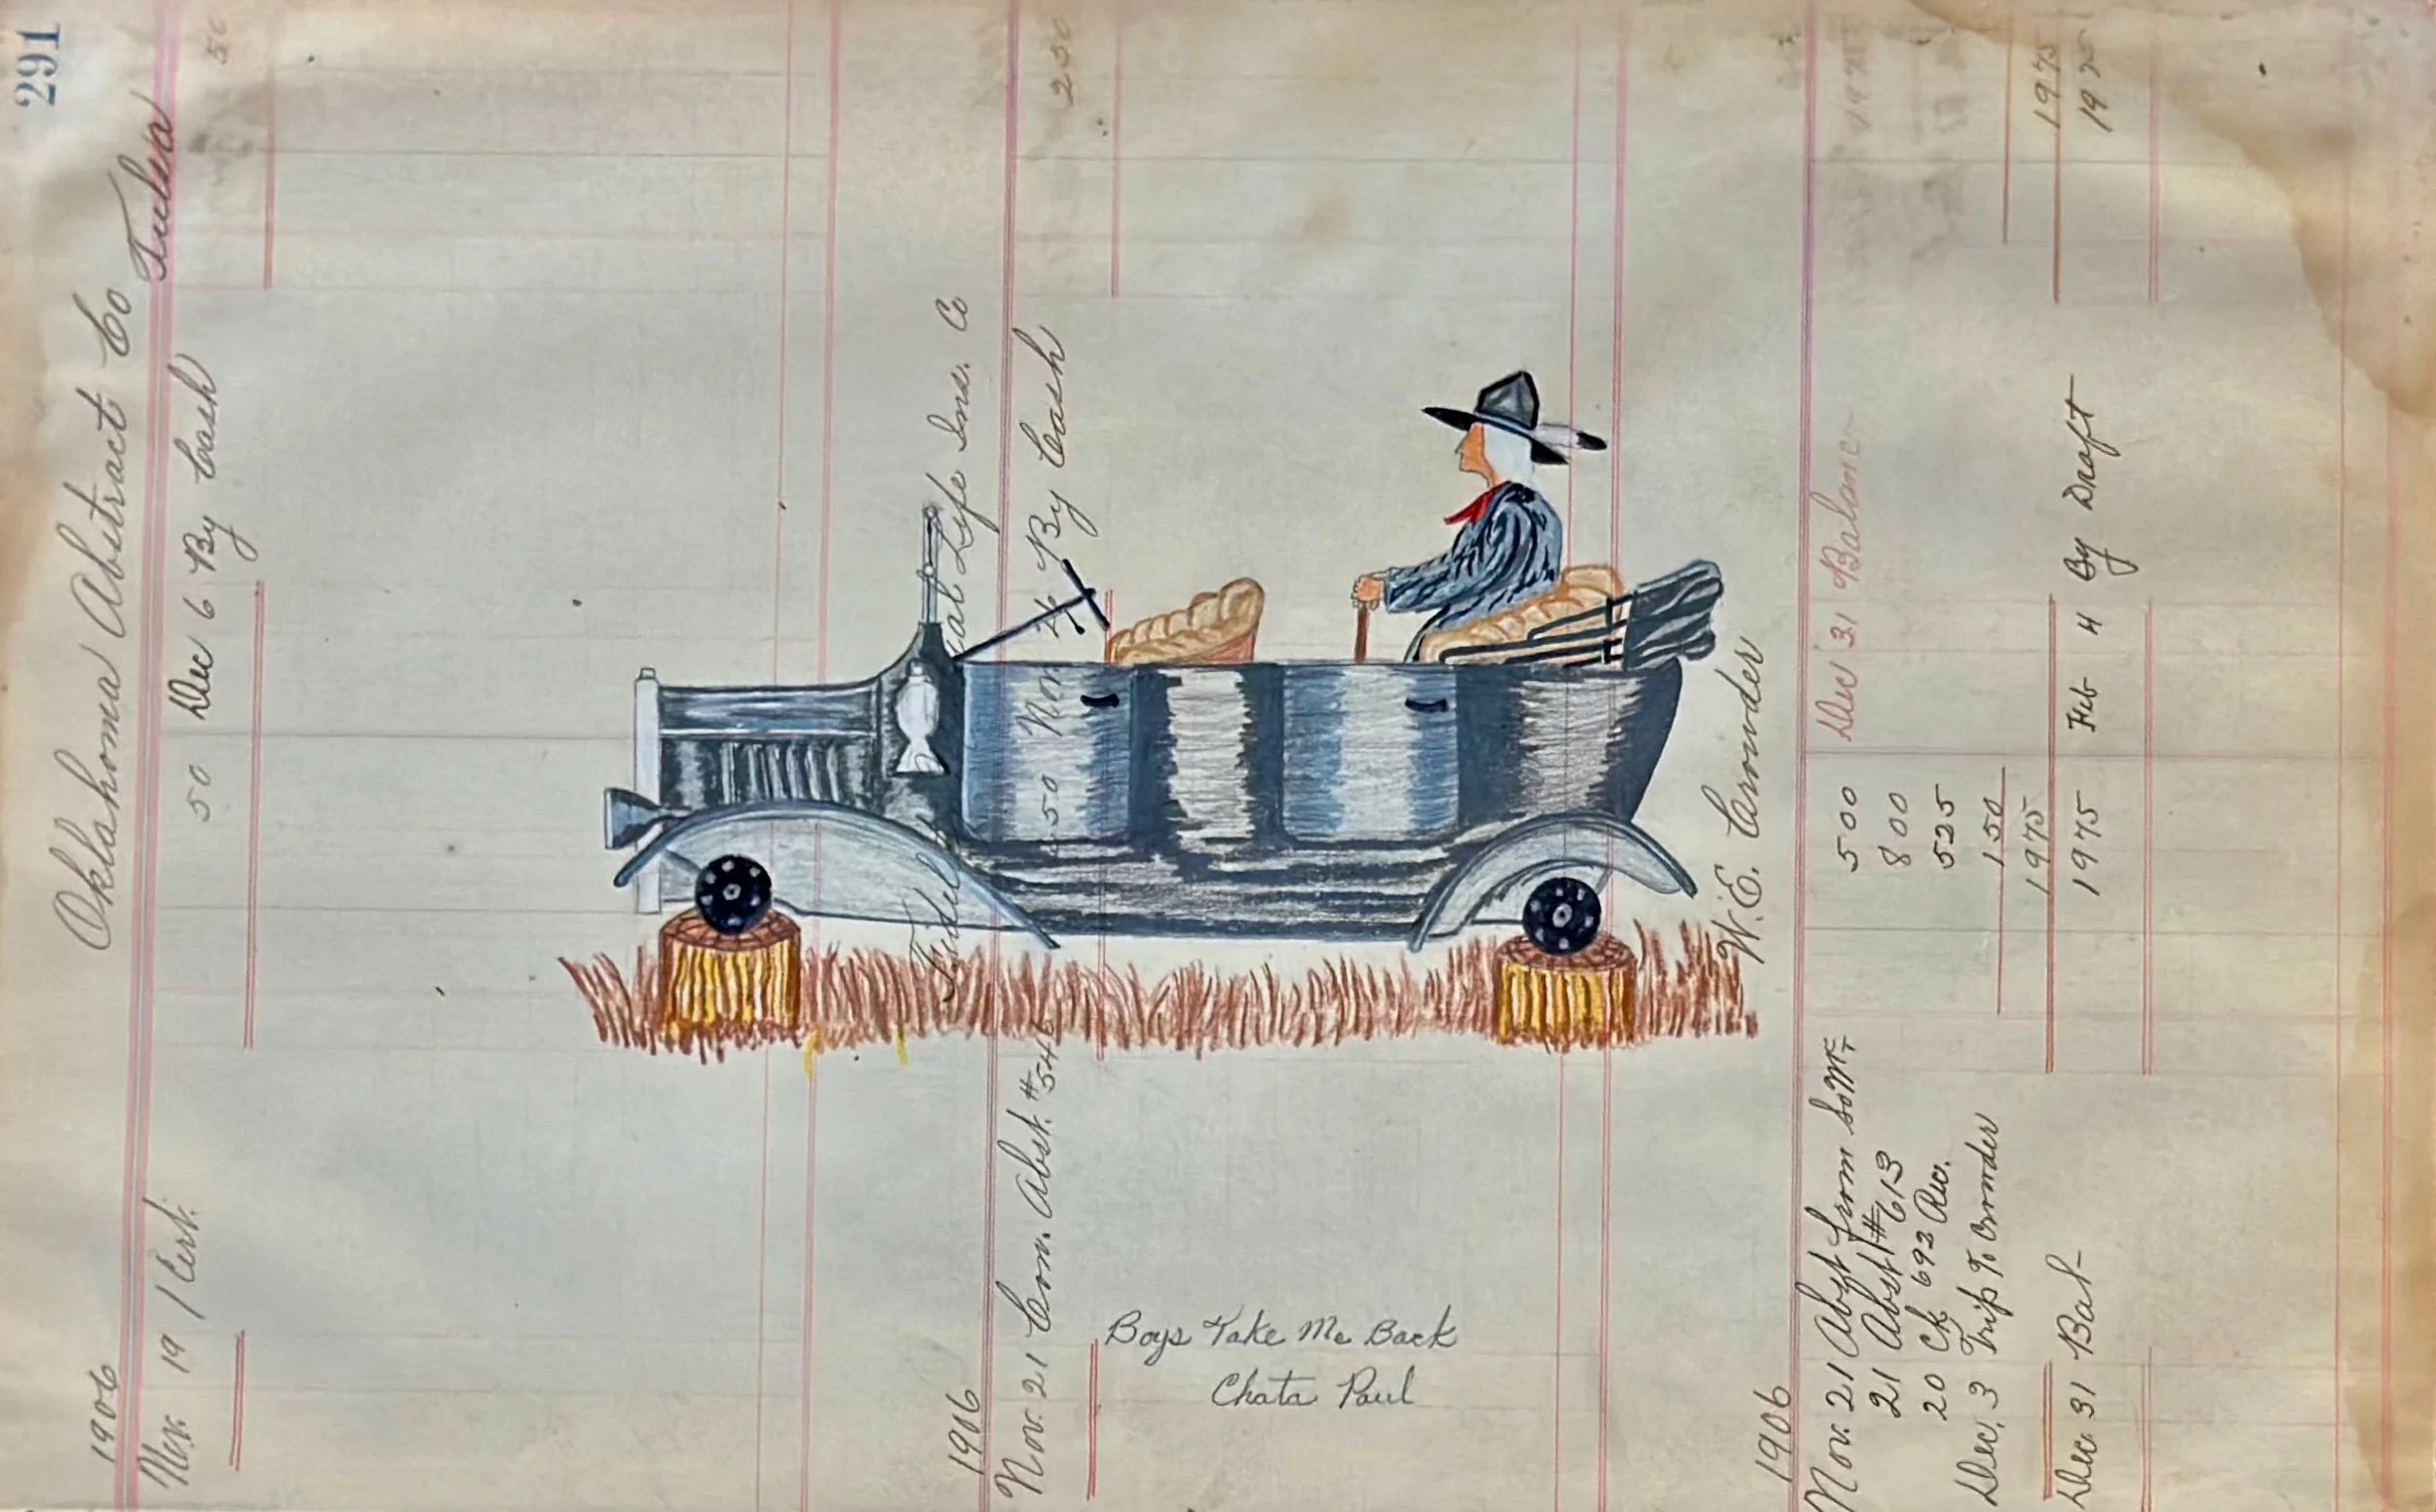 291
Oklahoma Abstract Co Tulsa
1906
Nov. 19 1 Cert. 50 Dec 6 By Cash 50
Fidel al Life Ins. Co
1906
Nov. 21 Com. Abst. #546 250 Nov 26 By Cash 250
W. E. Crowder
1906
Nov. 21 Abst from 500 Dec 31 Balance 1975
21 Abst #613 800
20 Ck 692 Rec. 525
Dec. 3 Trip To Crowder 150
1975 1975
Dec. 31 Bal- 1975 Feb 4 By Draft 1975
Boys Take Me Back
Chata Paul